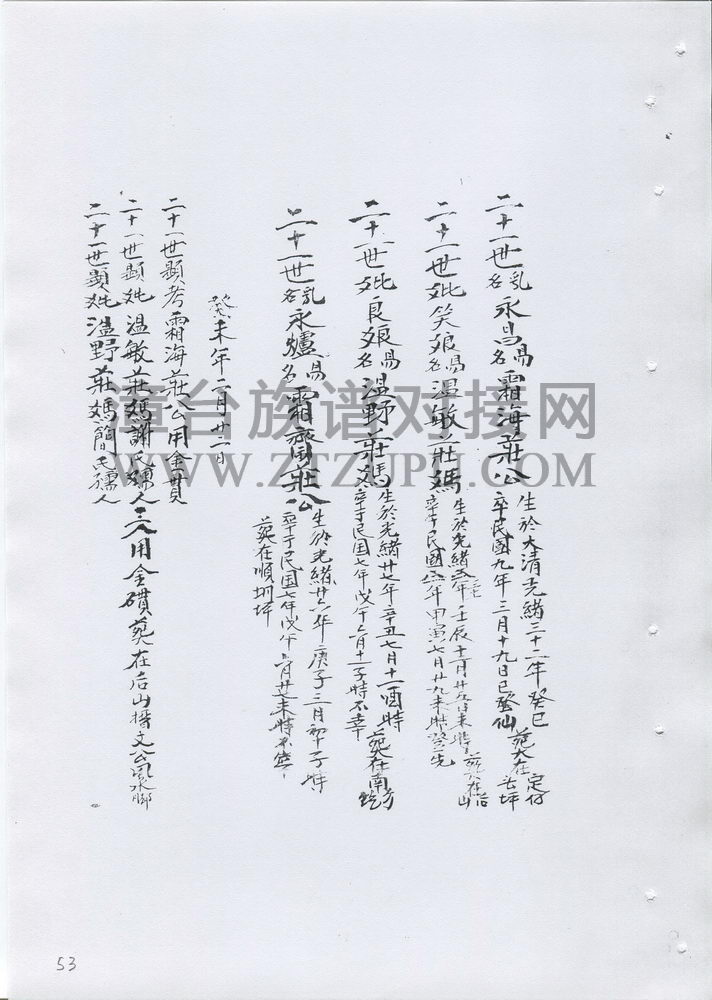 二十一世乳名永昌易名霜海莊公生於大清光緒三十二年癸巳
卒民國九年三月十九日巳登仙
葬在定仔
二十一世妣笑娘易名温敏莊媽生於光緒
年壬辰十二月廿五日未時葬在后山
卒于民國
年甲寅七月廿九未時登仙
二十一世妣良娘易名温野莊媽生於光緒廿七年辛丑七月十一酉時葬在南
卒于民国七年戊午六月十二子時不幸
二十一世乳名永爐易名霜齋莊公生於光緒廿六年庚子三月初十子時
卒于民国七年戊午六月廿
未時不幸
葬在順圳坪
癸未年二月廿二日
二十一世顯考霜海莊公用金貫
二十一世顯妣温敏莊媽謝氏孺人三人用金礸葬在后山揩文公風水脚
二十一世顯妣温野莊媽簡氏孺人
漳台族谱对接网
WWW.ZTZUPU.COM
53